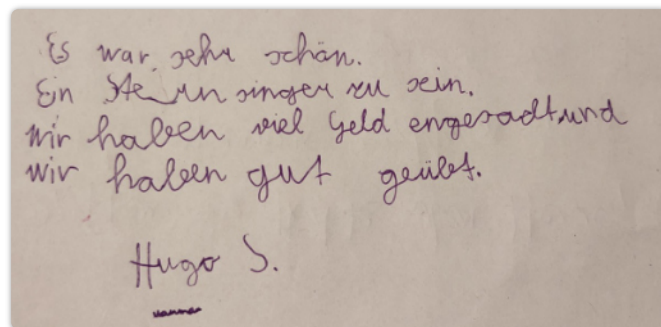 Es war sehr schön.
Ein Sternsinger zu sein.
wir haben viel Geld engesadt und
wir haben gut geübt.
Hugo S.